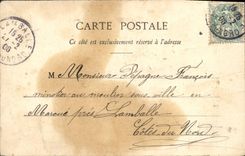 CARTE POSTALE
Ce côté est exclusivement réservé à l'adresse
LAMBALLE
15 25
21 - 2
06
M. Monsieur Depagne François
minotier au moulin sous ville en
Maroué près Lamballe
Côtes du Nord